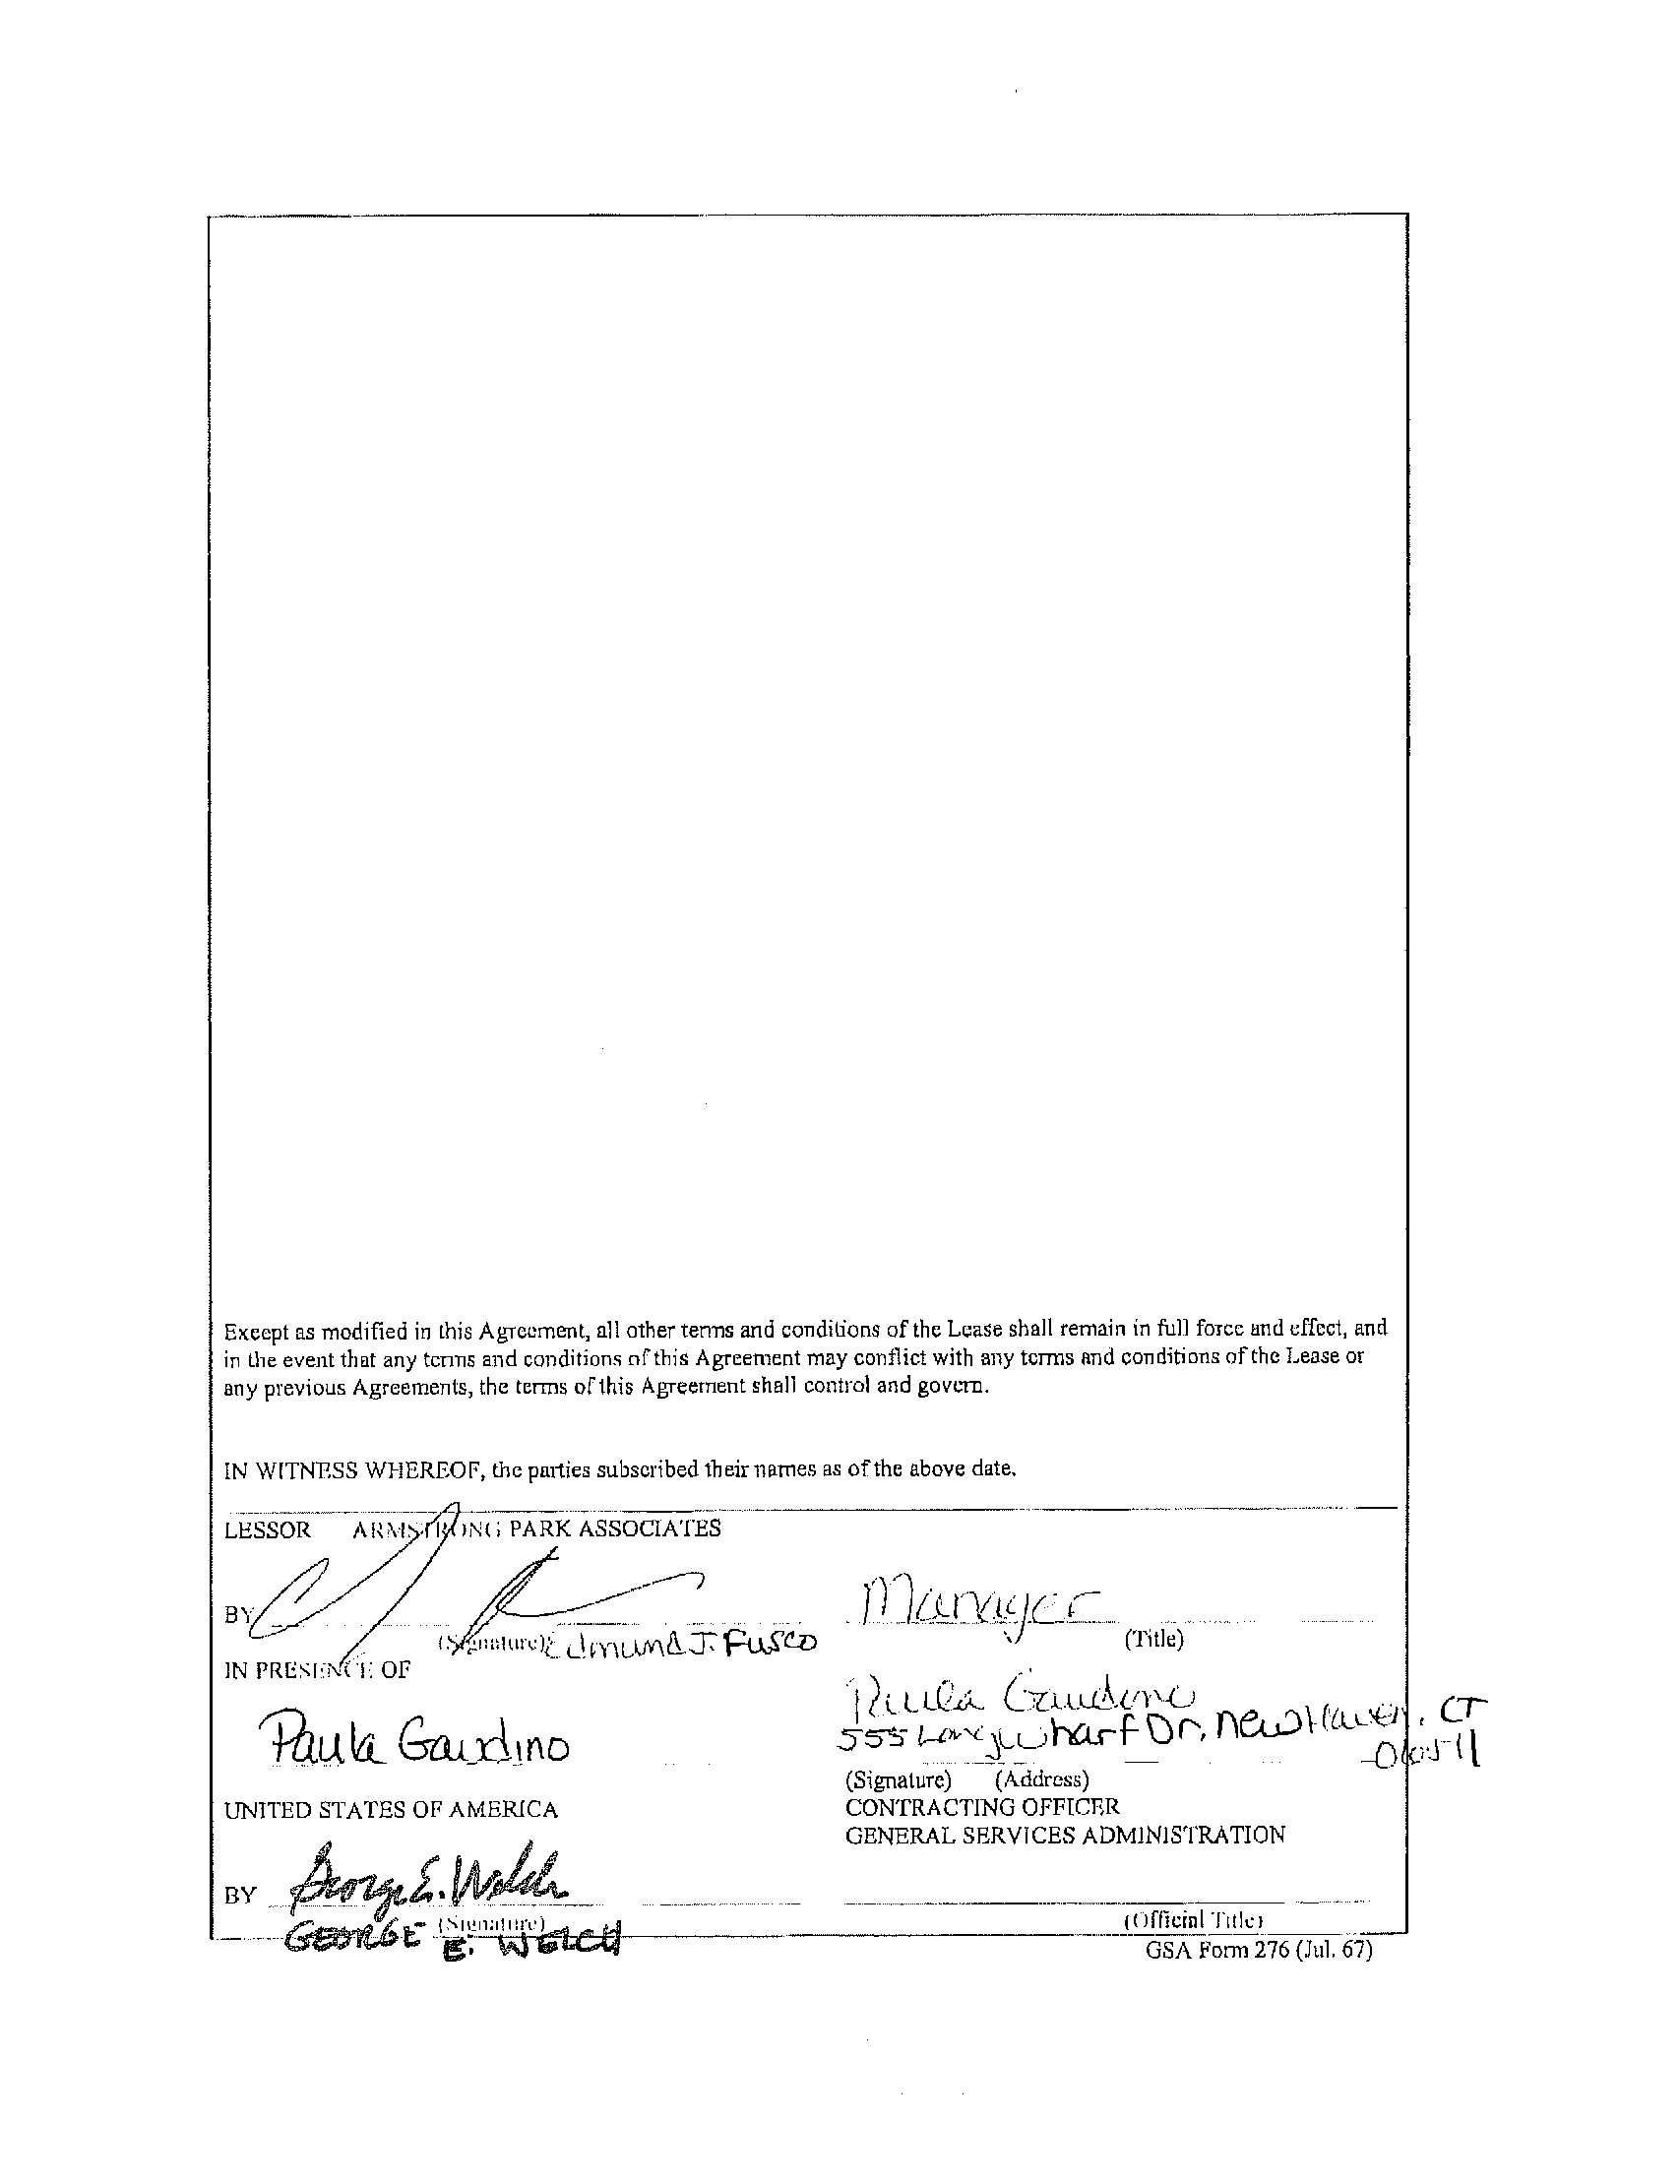 Except as modified in this Agreement, all other terms and conditions of the Lease shall remain in full force and effect, and
in the event that any terms and conditions of this Agreement may conflict with any terms and conditions of the Lease or
any previous Agreements, the terms of this Agreement shall control and govern.
IN WITNESS WHEREOF, the parties subscribed their names as of the above date.
LESSOR ARMSTRONG PARK ASSOCIATES
BY Manager
(Signature) Edmund J. Fusco (Title)
IN PRESENCE OF
Paula Gaudino
Paula Gaudino
555 Long Wharf Dr, New Haven, CT
06511
(Signature) (Address)
UNITED STATES OF AMERICA CONTRACTING OFFICER
GENERAL SERVICES ADMINISTRATION
BY George E. Welch
(Signature) (Official Title)
GEORGE E. WELCH
GSA Form 276 (Jul. 67)